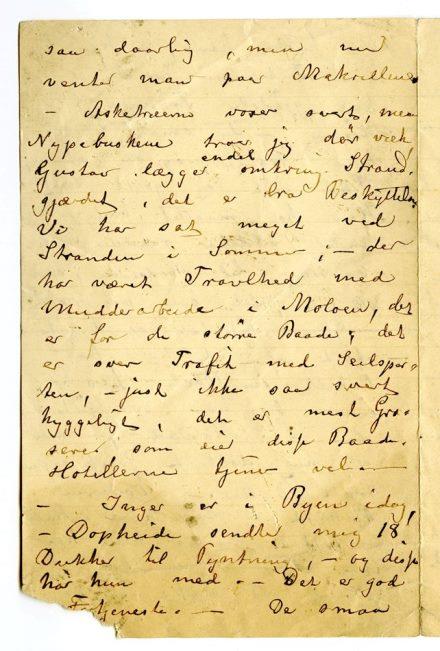 saa daarlig, men nu
venter man paa Makrillene
- Asketræerne voxer svært, men
Nypebuskene troer jeg dør væk,
endel
Gustav lægger omkring Strand-
gjærdet, det er bra Beskyttelse
Vi har sat meget ved
Stranden i Sommer, - der
har været Travlhed med
Mudderarbeide i Moloen, det
er for de større Baade, det
er svær Trafik med Seilspor-
ten, - just ikke saa svært
hyggeligt, det er mest Gros-
serer som eie disse Baade.
Hotellerne tjener vel -
- Inger er i Byen idag,
- Dopheide sendte mig 18
Dukker til Pyntning, - og disse
har hun med. - Det er god
Fortjeneste. - De smaa